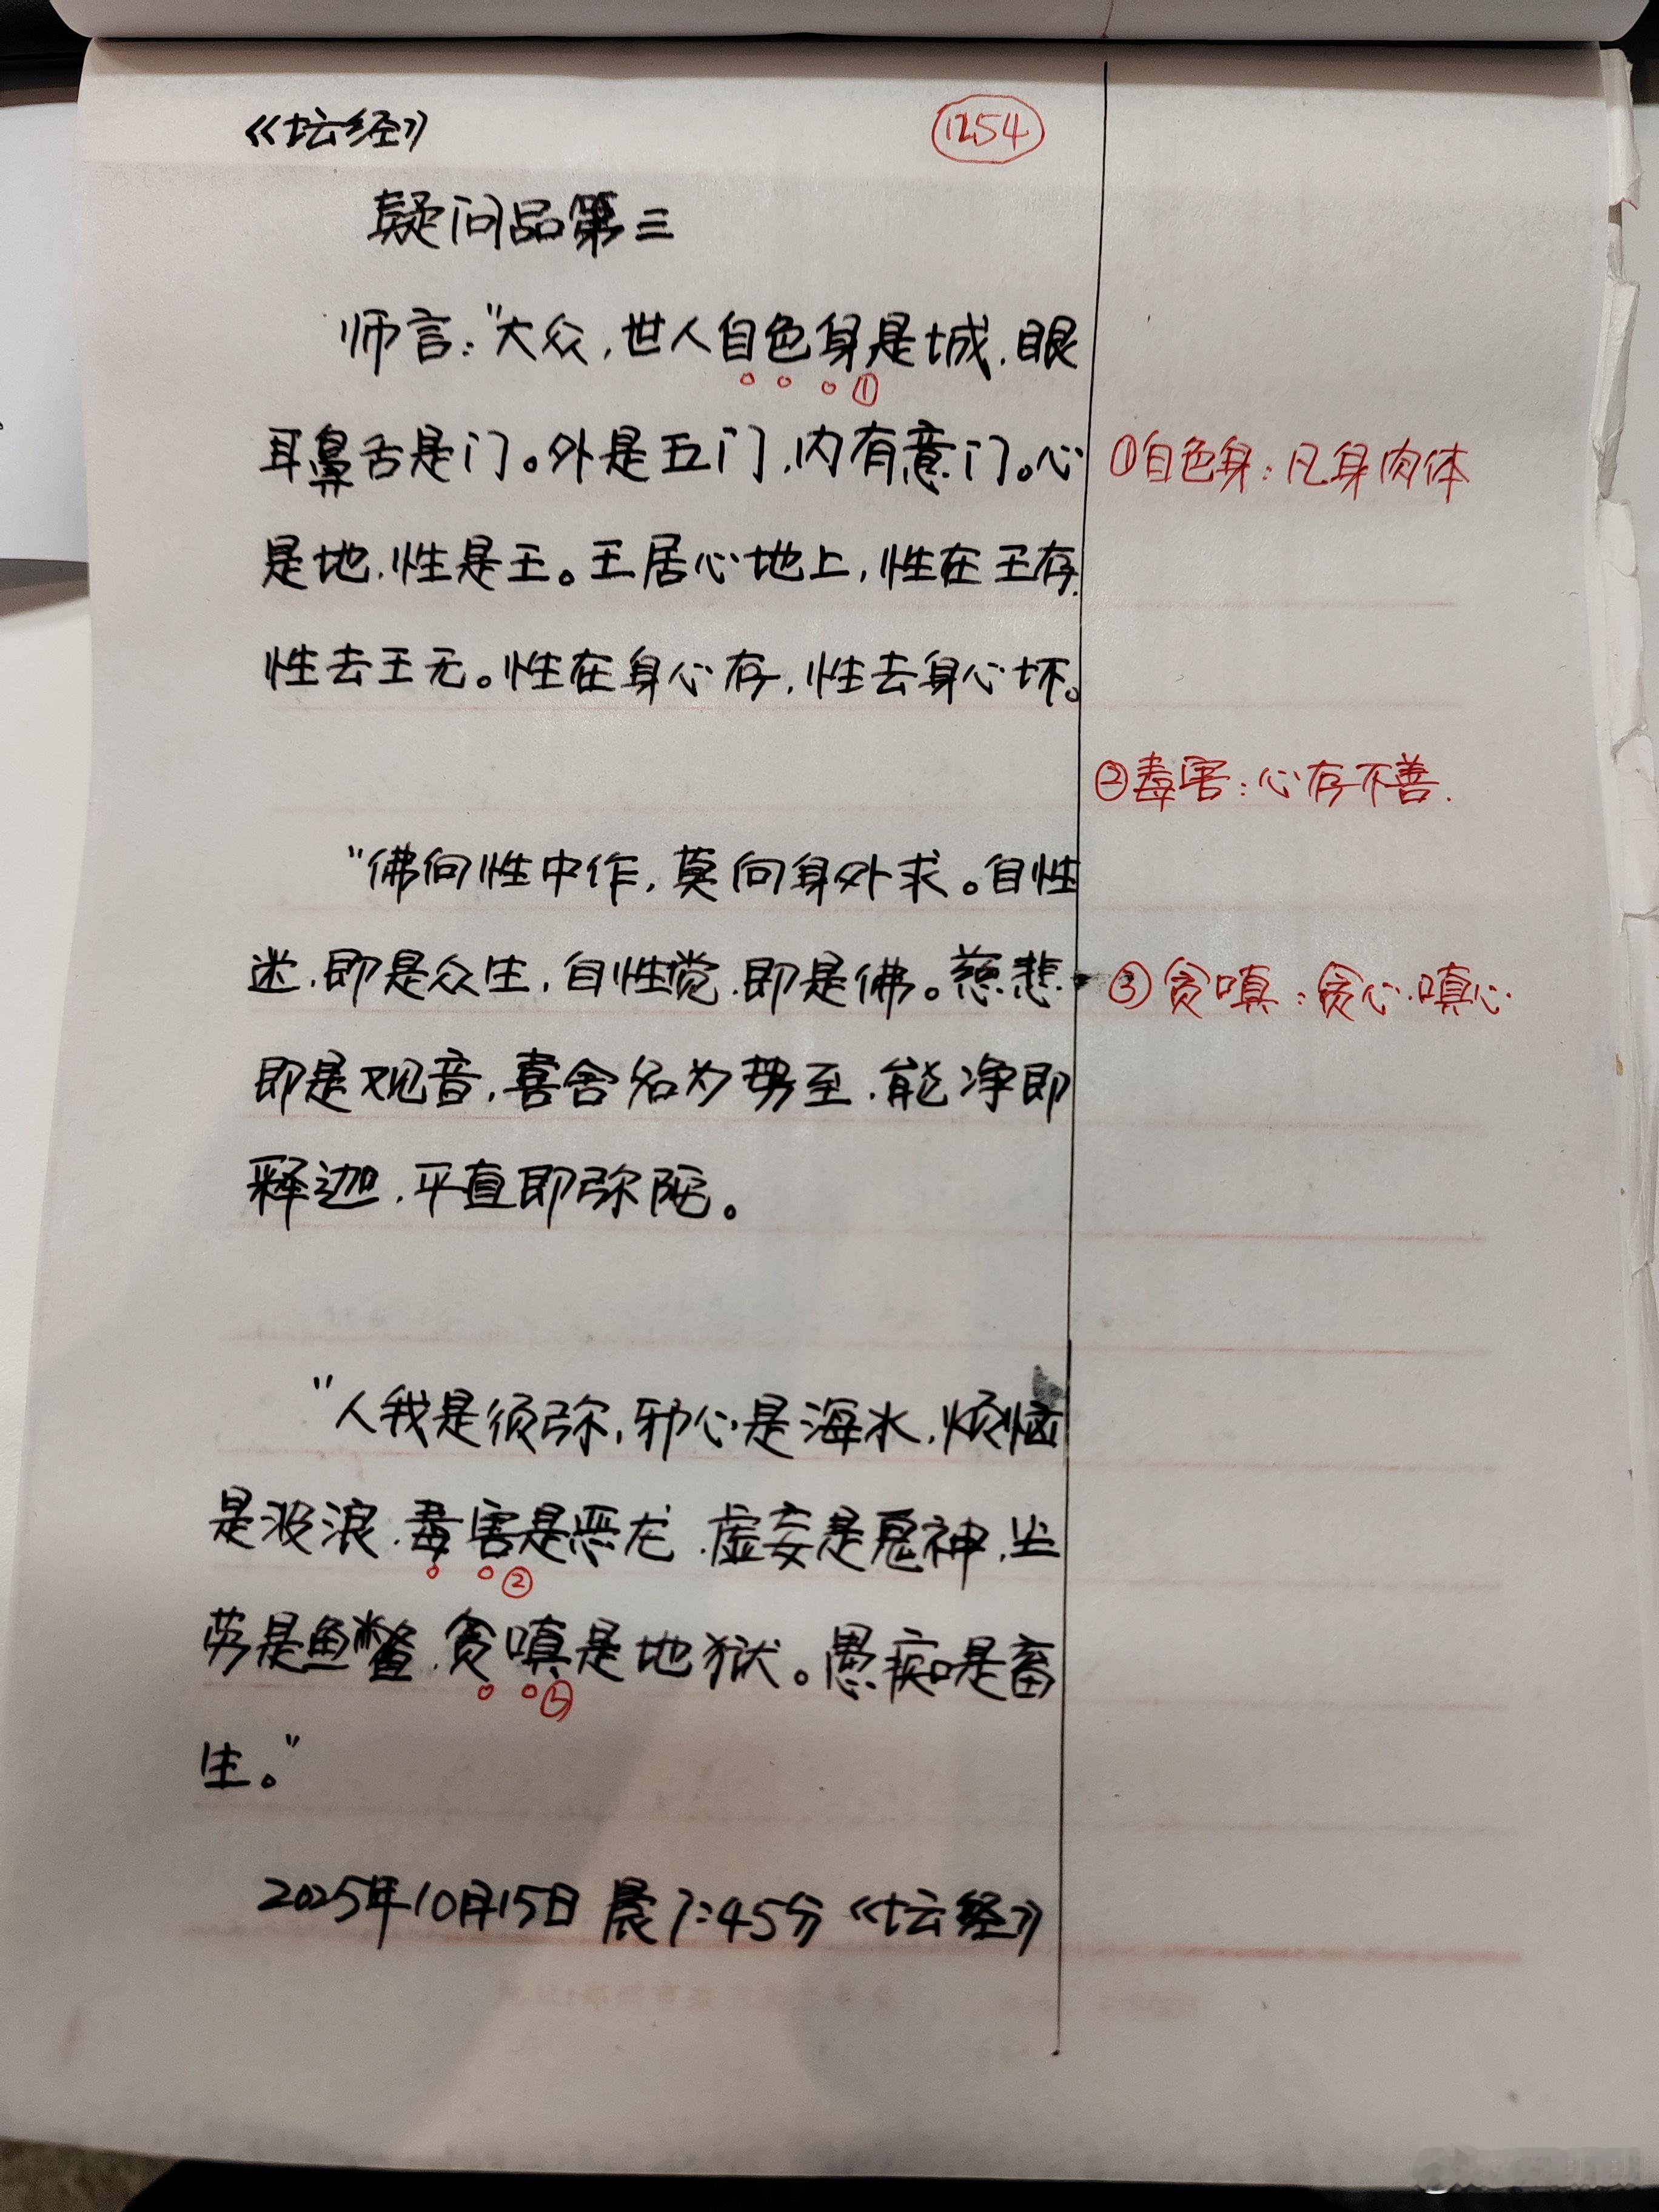 《坛经》
1254
疑问品第三
师言：“大众，世人自色身是城，眼
①
耳鼻舌是门。外是五门，内有意门。心
①自色身：凡身肉体
是地，性是王。王居心地上，性在王存，
性去王无。性在身心存，性去身心坏。
②毒害：心存不善.
“佛向性中作，莫向身外求。自性
迷，即是众生，自性觉，即是佛。慈悲
③贪嗔：贪心.嗔心.
即是观音，喜舍名为势至，能净即
释迦，平直即弥陀。
“人我是须弥，邪心是海水，烦恼
是波浪，毒害是恶龙，虚妄是鬼神，尘
②
劳是鱼鳖，贪嗔是地狱。愚痴是畜
③
生。”
2025年10月15日 晨7:45分《坛经》